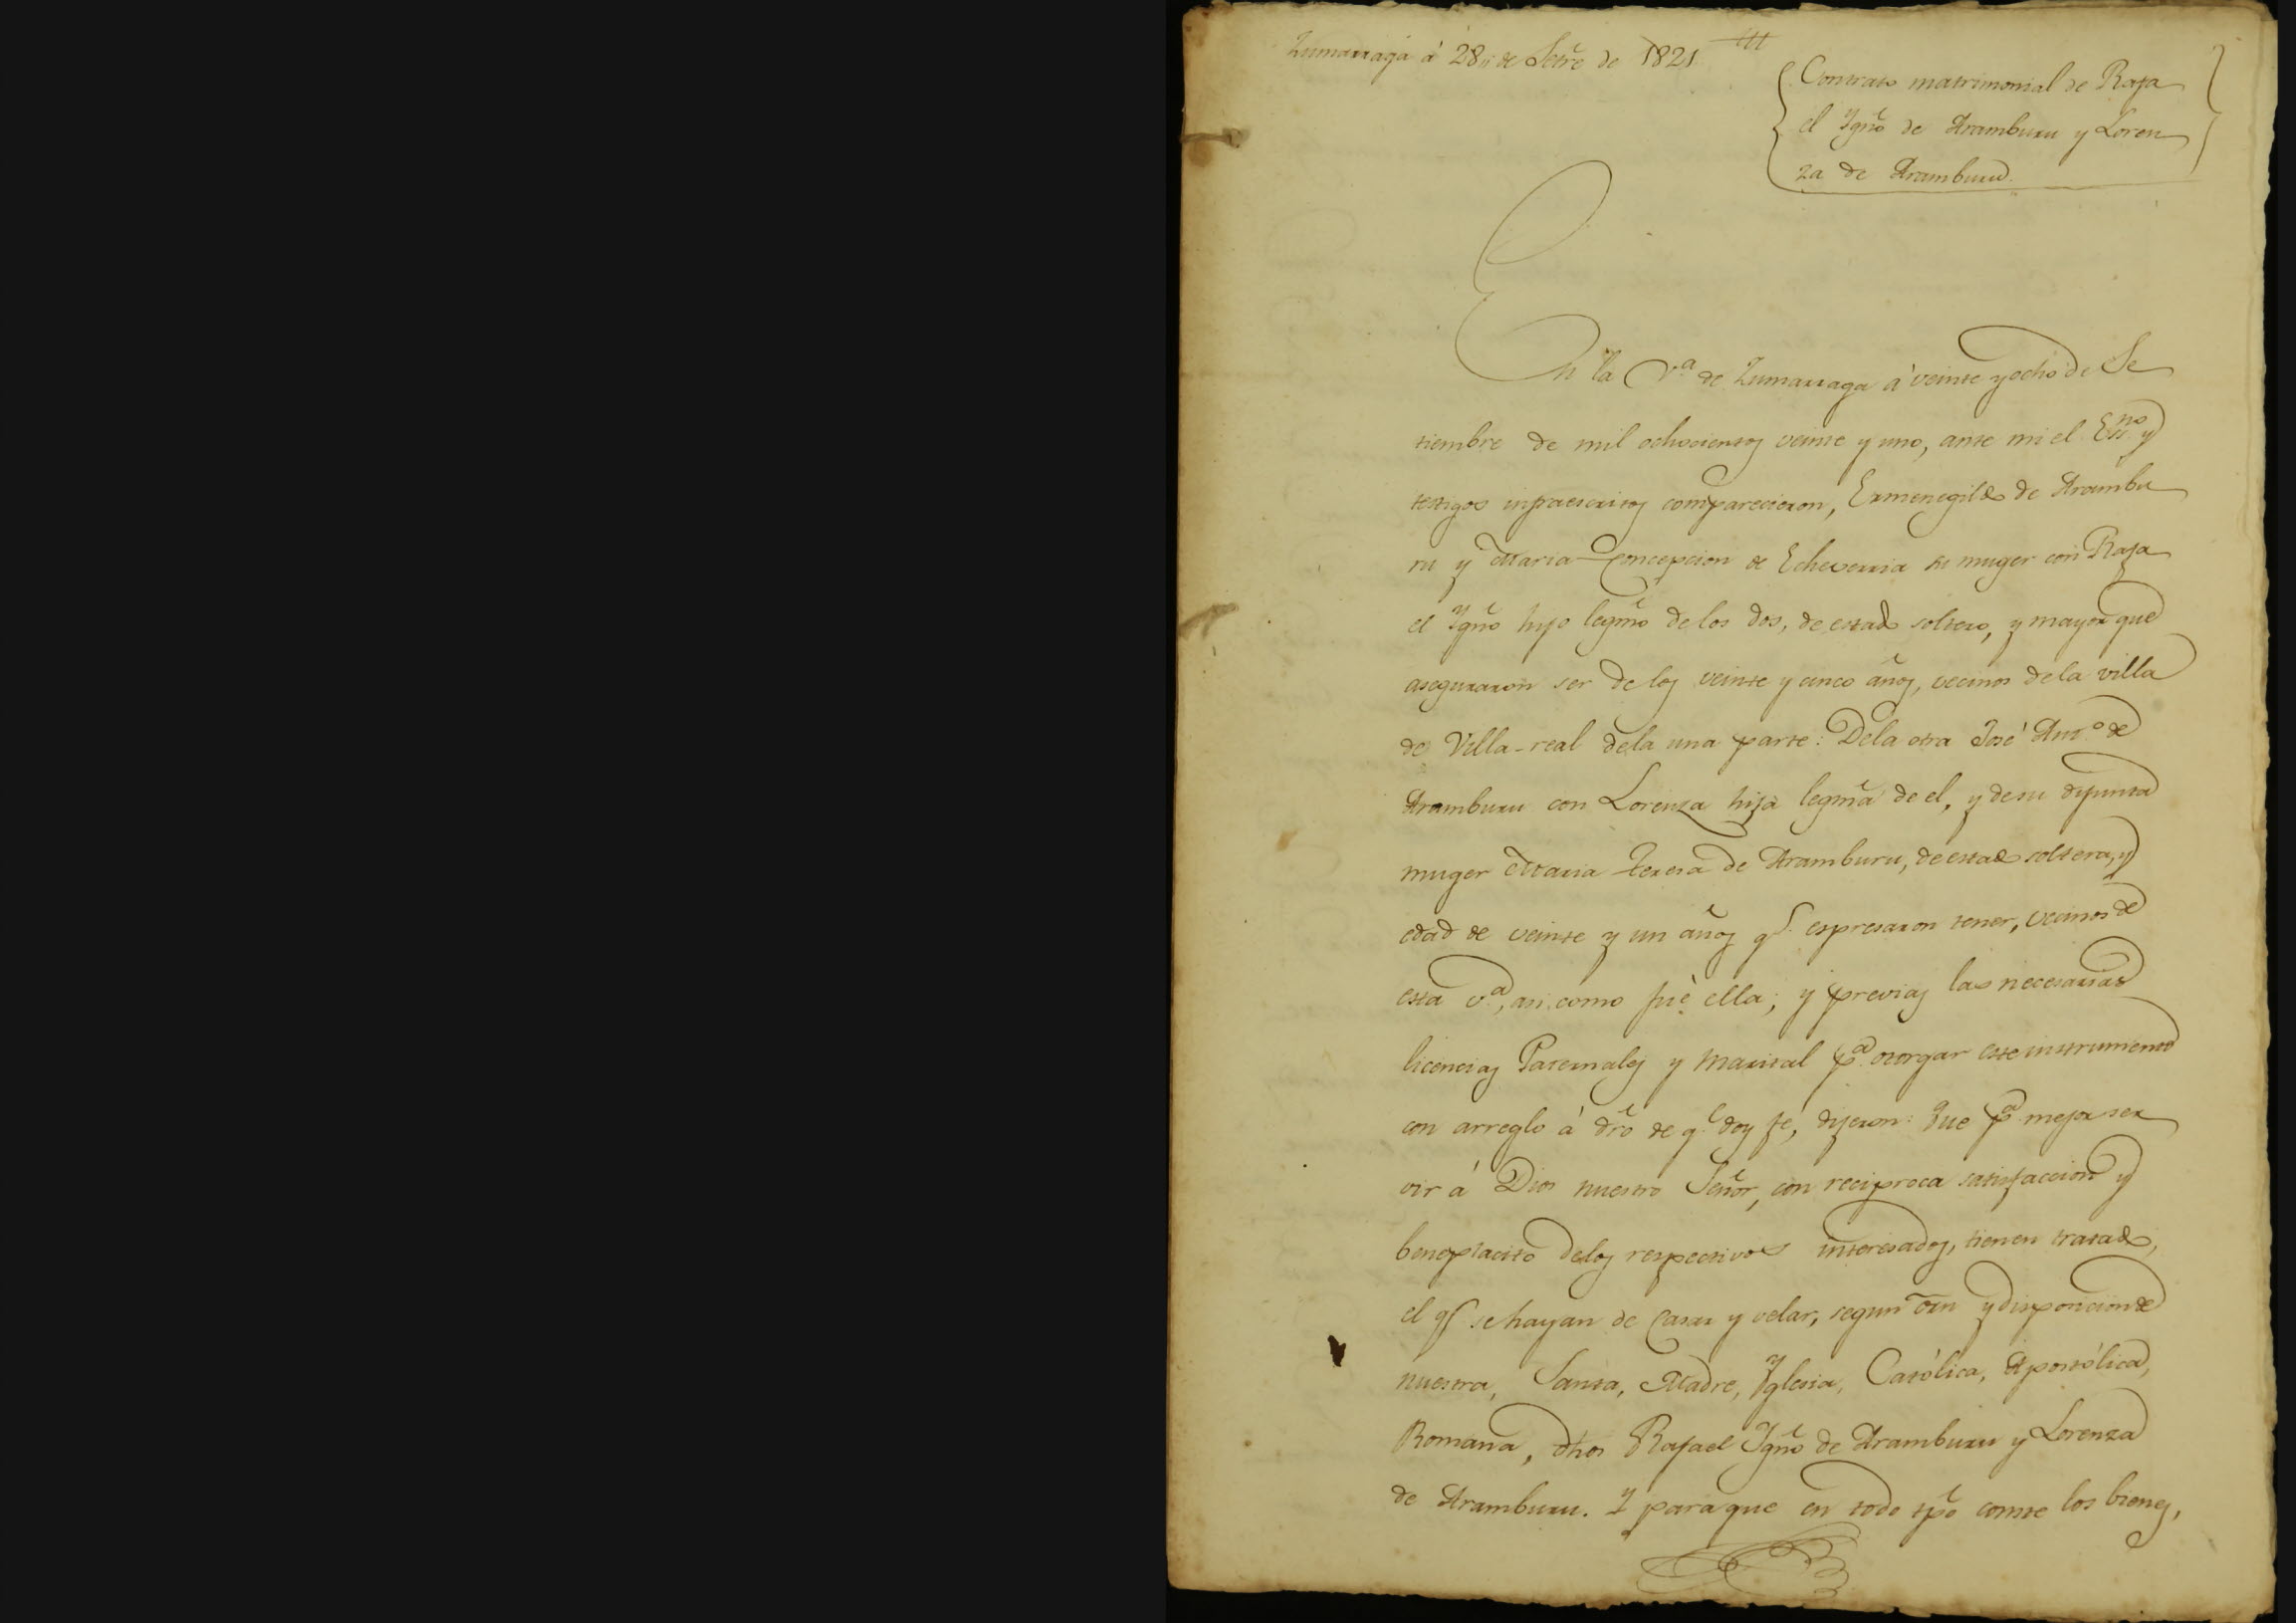 Zumarraga á 28,, de Setrē de 1821
Contrato matrimonial de Rafa
el Ygnō de Aramburu y Loren
za de Aramburu.
En la V.ª de Zumarraga á veinte y ocho de Se
tiembre de mil ochocientos veinte y uno, ante mi el Ess.no y
testigos infraescritos comparecieron, Ermenegildo de Arambu
ru y Maria Concepcion de Echeverria su muger con Rafa
el Ygnō hijo legmō de los dos, de estado soltero, y mayor que
aseguraron ser de los veinte y cinco años, vecinos de la villa
de Villa-real de la una parte: De la otra José Ant.º de
Aramburu con Lorenza hija legmā de el, y de su difunta
muger Maria Teresa de Aramburu, de estado soltera, y
edad de veinte y un años q.e espresaron tener, vecinos de
esta v.ª, asi como fué ella; y previas las necesarias
licencias Paternales y Marital p.ª otorgar este instrumento
con arreglo á drō de q.e doy fé, dijeron: Que p.ª mejor ser
vir á Dios nuestro Señor, con reciproca satisfaccion y
beneplacito de los respectivos interesados, tienen tratado,
el q.e se hayan de Casar y velar, segun orn y disposicion de
nuestra, Santa, Madre, Yglesia, Católica, Apostólica,
Romana, dhos Rafael Ygnō de Aramburu y Lorenza
de Aramburu. Y para que en todo tpō conste los bienes,